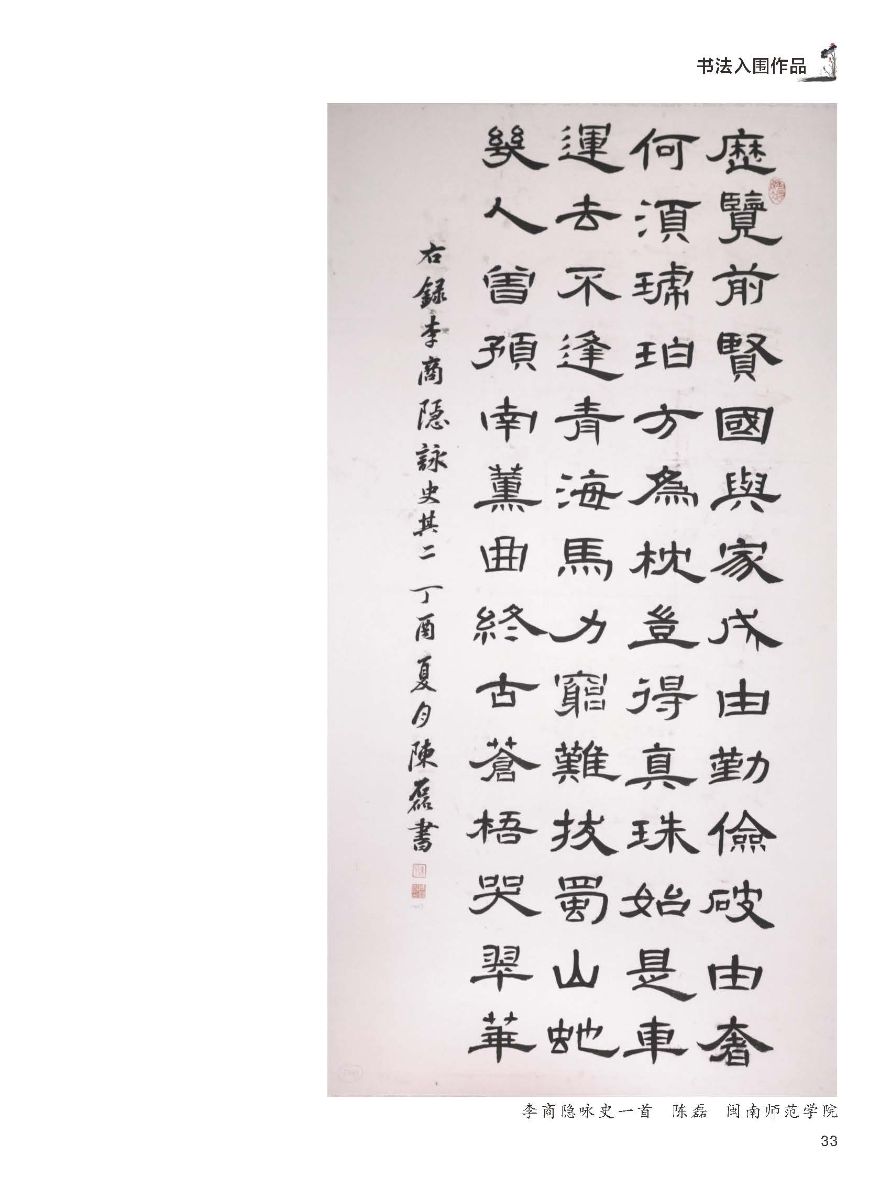 书法入围作品
歷覽前賢國與家成由勤儉破由奢
何須琥珀方為枕登得真珠始是車
運去不逢青海馬力窮難拔蜀山虵
幾人曾預南薰曲終古蒼梧哭翠華
右錄李商隐詠史其二丁酉夏月陳磊書
李商隐咏史一首 陈磊 闽南师范学院
33